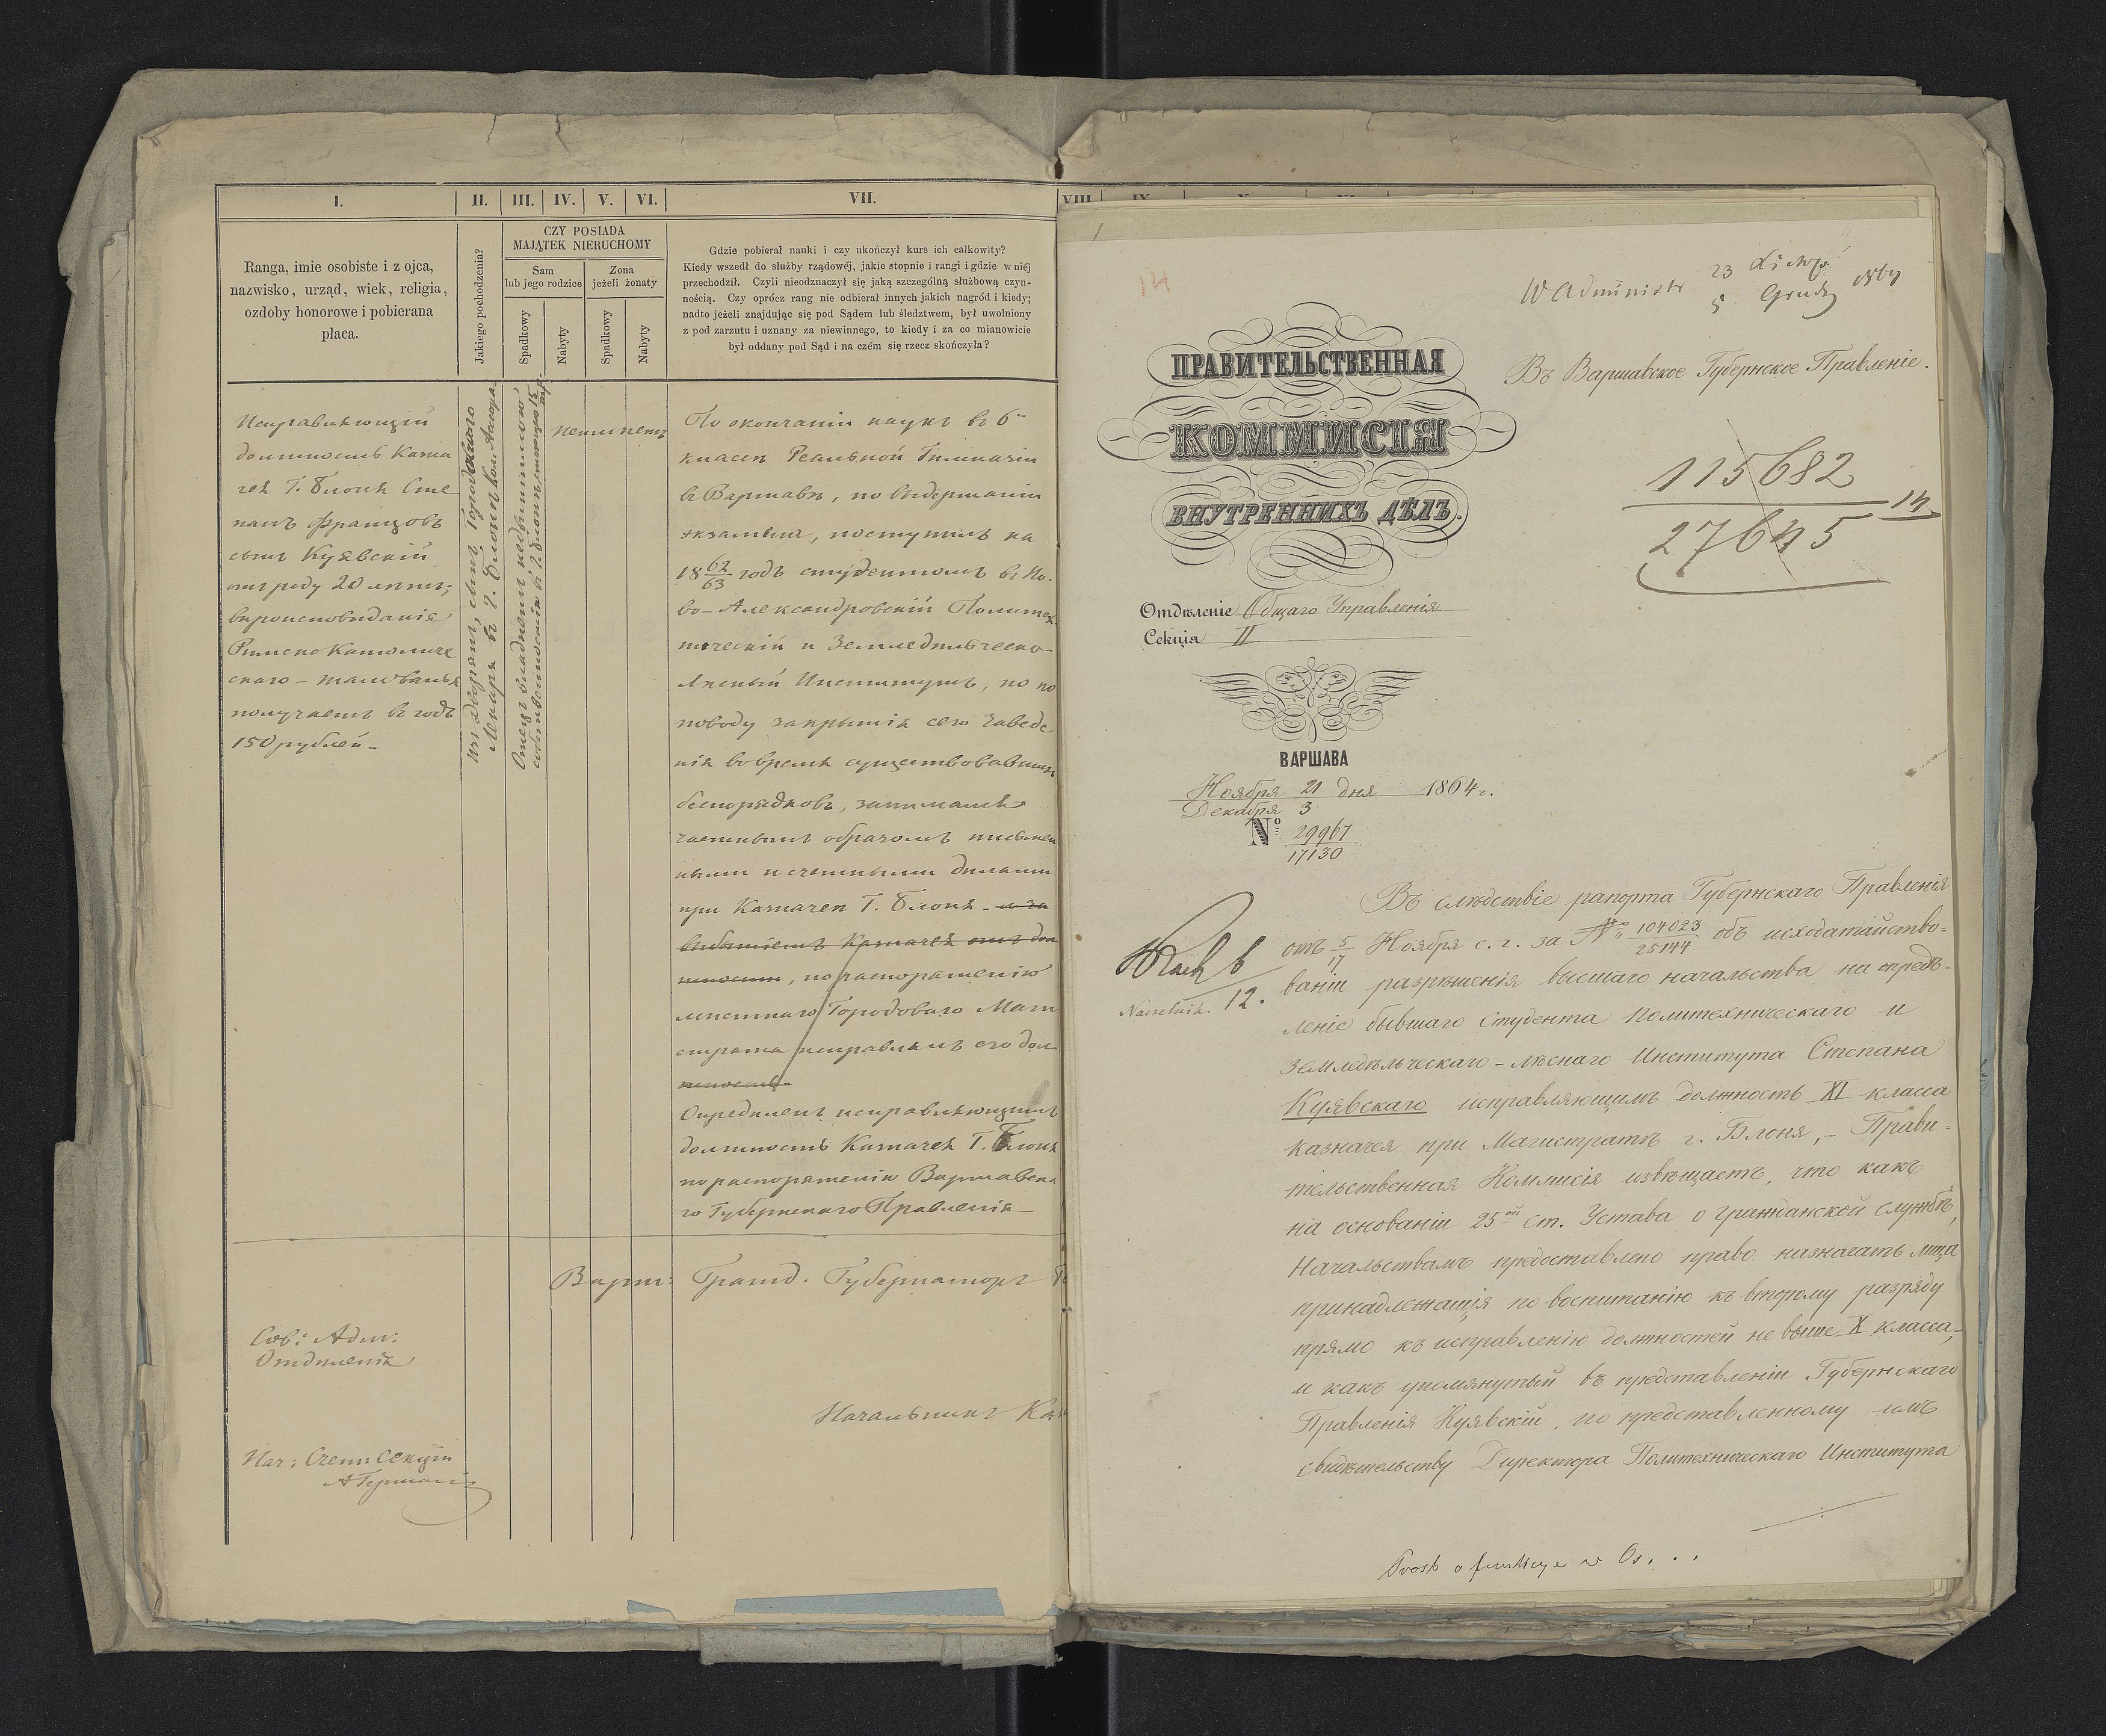 I.
II.
III.
IV.
V.
VI.
VII.
Ranga, imie osobiste i z ojca,
nazwisko, urząd, wiek, religia,
ozdoby honorowe i pobierana
płaca.
Jakiego pochodzenia?
CZY POSIADA
MAJĄTEK NIERUCHOMY
Sam
lub jego rodzice
Żona
jeżeli żonaty
Spadkowy
Nabyty
Spadkowy
Nabyty
Gdzie pobierał nauki i czy ukończył kurs ich całkowity?
Kiedy wszedł do służby rządowéj, jakie stopnie i rangi i gdzie w niéj
przechodził. Czyli nieodznaczył się jaką szczególną służbową czyn-
nością. Czy oprócz rang nie odbierał innych jakich nagród i kiedy;
nadto jeżeli znajdując się pod Sądem lub śledztwem, był uwolniony
z pod zarzutu i uznany za niewinnego, to kiedy i za co mianowicie
był oddany pod Sąd i na czém się rzecz skończyła?
Исправляющій
должность Казна
чея Г. Блоня Сте
панъ Францовъ
сынъ Куявскій
отъ роду 20 лѣтъ,
вѣроисповѣданія
Римско Католиче
скаго – жалованья
получаетъ въ годъ
150 рублей –
изъ Дворянъ, сынъ Городоваго
Лекаря въ г. Блони
Отецъ владѣетъ недвижимою
собственностію въ г. Блони
По окончаніи наукъ въ 6
классѣ Реальной Гимназіи
въ Варшавѣ, по выдержаніи
экзамена, поступилъ на
18 62/63 годъ студентомъ въ Но-
во-Александровскій Политех
ническій и Земледѣльческо-
Лѣсный Институтъ, по по
поводу закрытія сего Заведе
нія во время существовавшихъ
беспорядковъ, занимался
частнымъ образомъ письмен
ными и счетными дѣлами
при Казначеѣ Г. Блоня – и за
выбытіемъ Казначея отъ дол
жности, по распоряженію
мѣстнаго Городоваго Маги
страта исправлялъ его дол
жность
Опредѣленъ исправляющимъ
должность Казначея Г. Блоня
по распоряженію Варшавска
го Губернскаго Правленія
Варш: Гражд. Губернаторъ
Сов: Адм:
Отдѣленія
Начальникъ
Нач: Счетн: Секціи
VIII
14
W Administr 23 Listop
5 Grud 1864
ПРАВИТЕЛЬСТВЕННАЯ
КОММИСІЯ
ВНУТРЕННИХЪ ДѢЛЪ.
Въ Варшавское Губернское Правленіе.
115682
27645
14
Отдѣленіе Общаго Управленія
Секція II
ВАРШАВА
Ноября 21 дня 1864 г.
Декабря 3
№ 29967
17130
Въ слѣдствіе рапорта Губернскаго Правленія
отъ 5/17 Ноября с. г. за № 104023/25144 объ исходатайство-
ваніи разрѣшенія высшаго начальства на опредѣ-
леніе бывшаго Студента Политехническаго и
Земледѣльческаго-лѣснаго Института Степана
Куявскаго исправляющимъ должность XI класса
Казначея при Магистратѣ г. Блоня, – Прави-
тельственная Коммисія извѣщаетъ, что какъ
на основаніи 25ой ст. Устава о гражданской службѣ,
Начальствамъ предоставлено право назначать лица
принадлежащія по воспитанію къ второму разряду
прямо къ исправленію должностей не выше X класса,
и какъ упомянутый въ представленіи Губернскаго
Правленія Куявскій, по представленному имъ
свидѣтельству Директора Политехническаго Института
12.